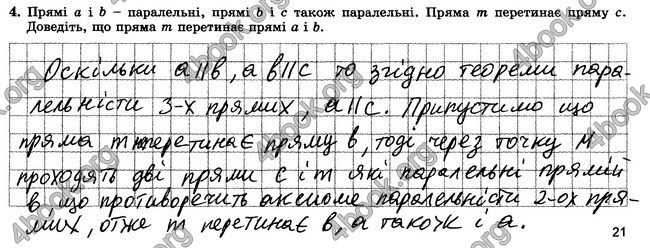 4. Прямі a і b – паралельні, прямі b і c також паралельні. Пряма m перетинає пряму c.
Доведіть, що пряма m перетинає прямі a і b.
Оскільки a||в, а в||с то згідно теореми пара-
лельності 3-х прямих, а||с. Припустимо що
пряма m перетинає пряму в, тоді через точку М
проходять дві прями с і m які паралельні прямій
в що противоречить аксиоме паралельністи 2-ох пря-
мих, отже m перетинає в, а також і а.
21
4book.org
4book.org
4book.org
4book.org
4book.org